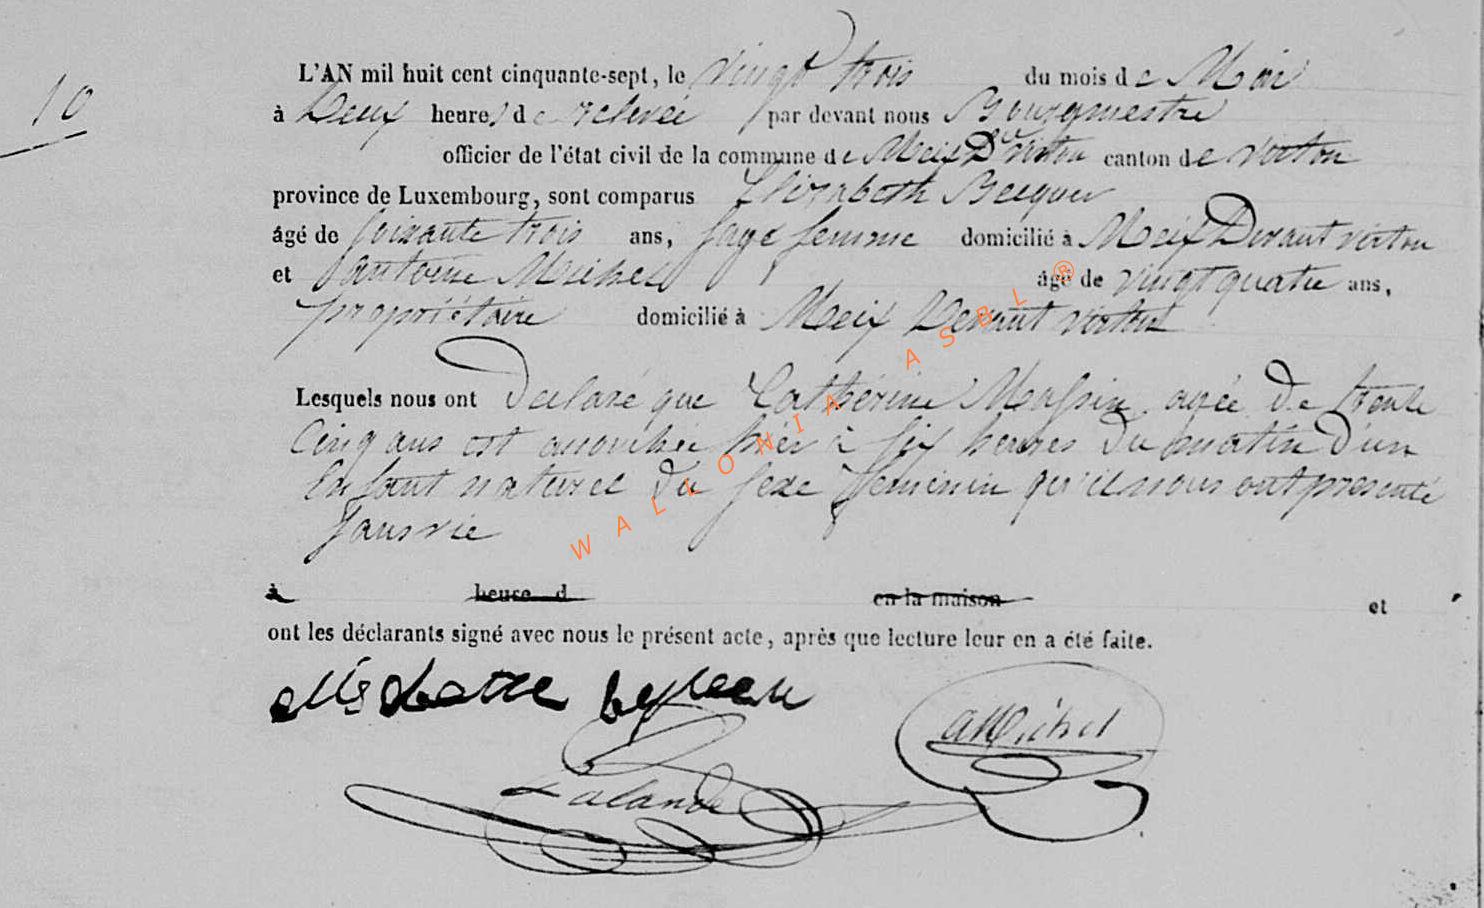 10
L'AN mil huit cent cinquante-sept, le vingt trois du mois de Mai
à Deux heures de relevée par devant nous Bourgmestre
officier de l'état civil de la commune de Meix Dt virton canton de virton
province de Luxembourg, sont comparus Elizabeth Becquer
âgé de soixante trois ans, sage femme domicilié à Meix Devant virton
et antoine Michel âgé de vingt quatre ans,
propriétaire domicilié à Meix Devant virton
Lesquels nous ont Declaré que Catherine Massin agée de trente
Cinq ans est accouchée hier à six heures du matin d'un
Enfant naturel du sexe feminin qu'ils nous ont presenté
sans vie
à heure d en la maison et
ont les déclarants signé avec nous le présent acte, après que lecture leur en a été faite.
AMichel
Lalande
WALLONIA ASBL ®